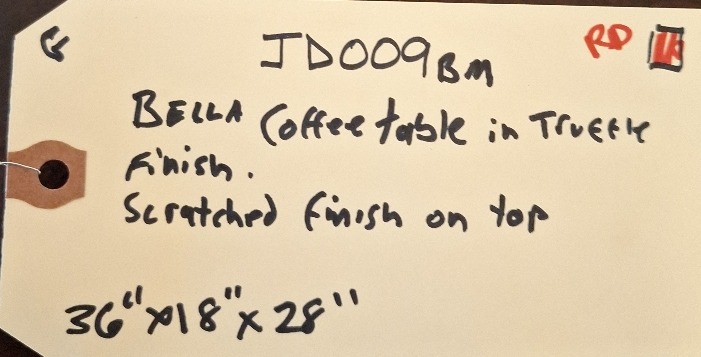 G
JD009BM
RD
BELLA Coffee table in Truffle
Finish.
Scratched finish on top
36"x18"x28"